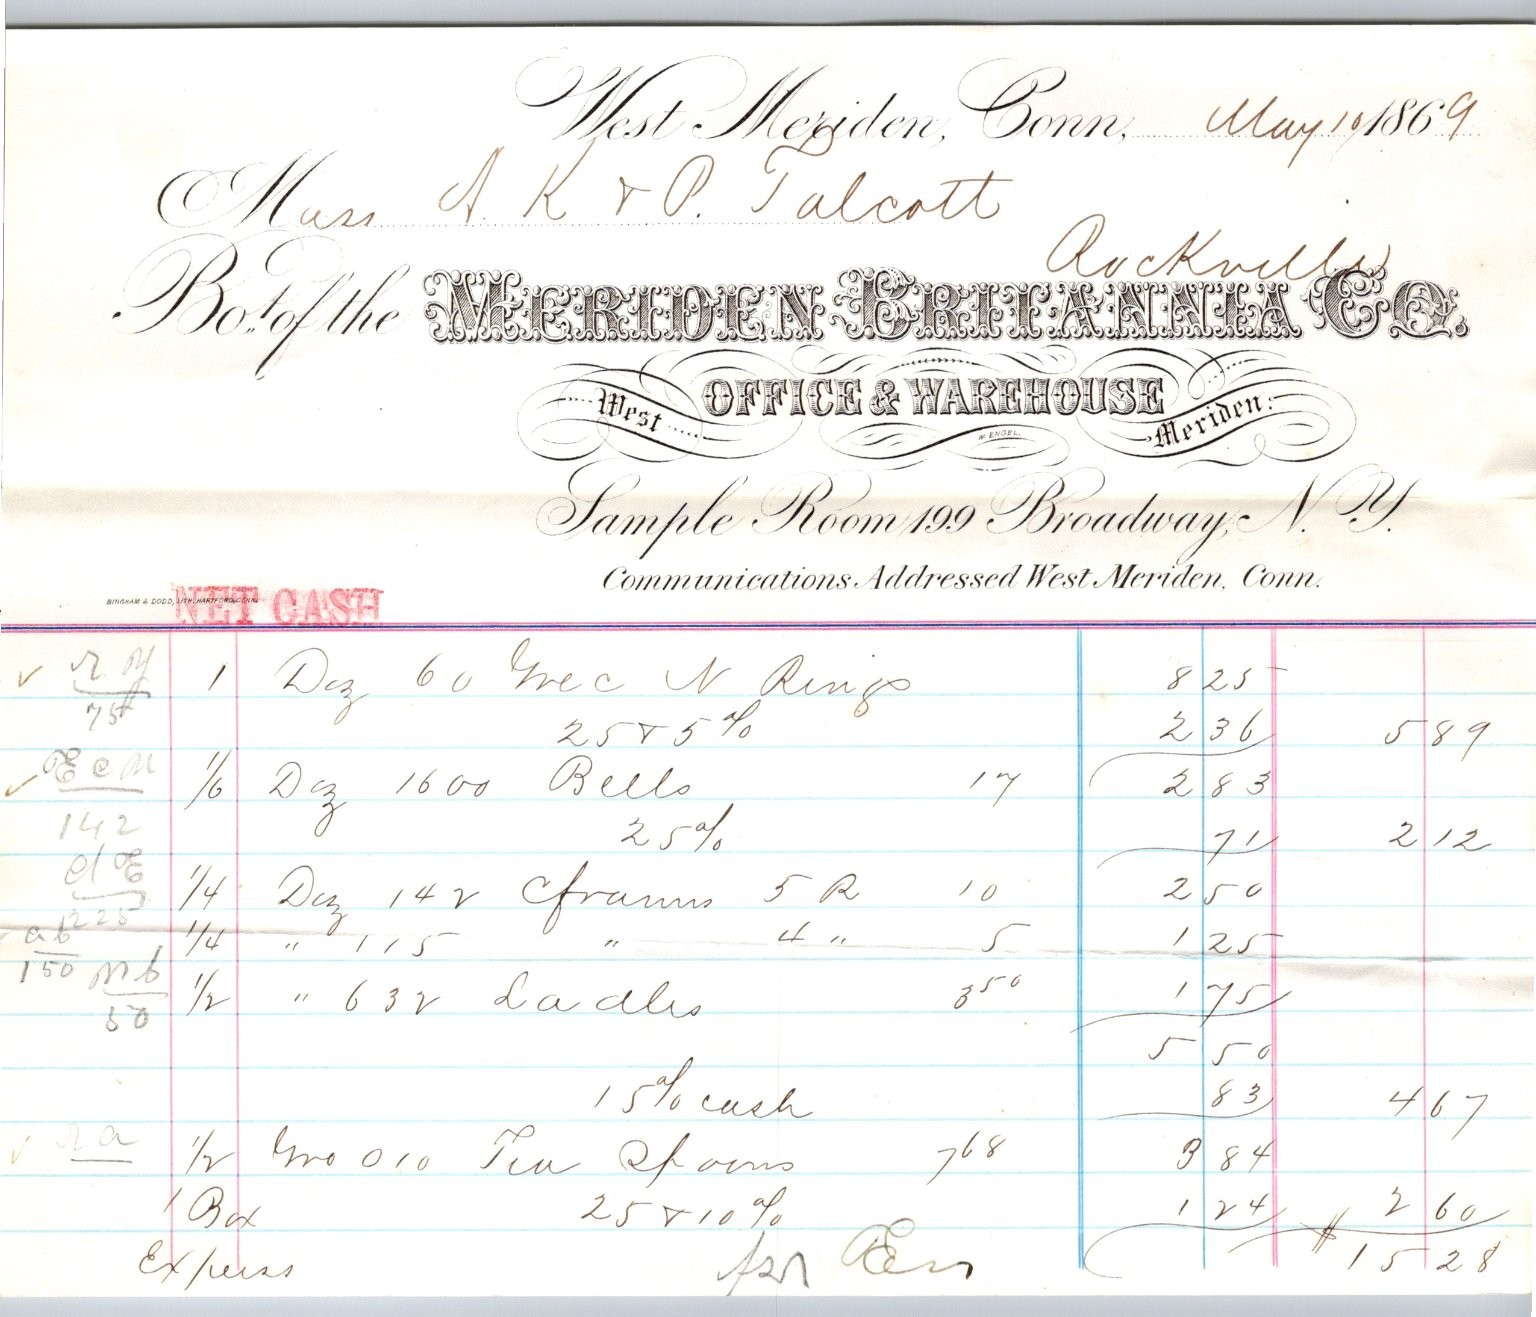 West Meriden, Conn. May 10, 1869
Mess A. K & P. Talcott
Rockville
Bot. of the MERIDEN BRITANNIA CO.
OFFICE & WAREHOUSE
West Meriden.
W. ENGEL.
Sample Room 199 Broadway, N. Y.
Communications Addressed West Meriden, Conn.
BINGHAM & DODD, LITH. HARTFORD, CONN.
NET CASH
1 Doz 60 N Rings 8 25
75
25 & 5 % 2 36 5 89
1/6 Doz 1600 Bells 17 2 83
142
25 % 71 2 12
1/4 Doz 142 5 R 10 2 50
1225
1/4 " 115 " 4 " 5 1 25
150
1/2 " 632 Ladles 3 50 1 75
50
5 50
15 % cash 83 4 67
1/2 Gro 010 Tea Spoons 7 68 3 84
1 Box 25 & 10 % 1 24 2 60
Express $ 15 28